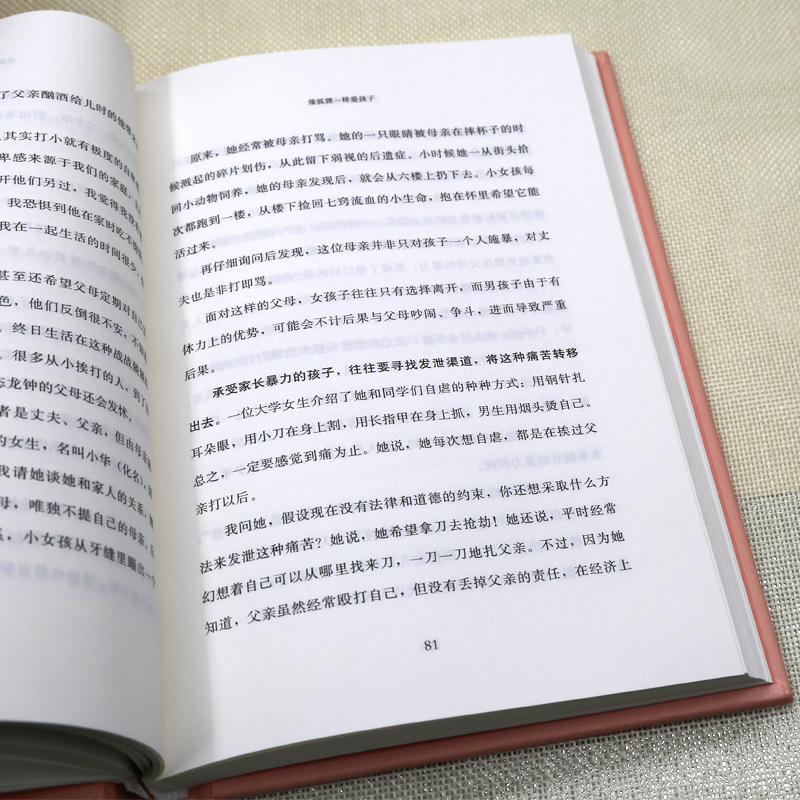 了父亲酗酒给儿时的他带来
其实打小就有极度的自卑
卑感来源于我们的家庭
开他们另过，我觉得我没
我恐惧到他在家时吃不
我在一起生活的时间很少
甚至还希望父母定期对自己
色，他们反倒很不安，不
，终日生活在这种战战兢兢
，很多从小挨打的人，到了
态龙钟的父母还会发怵。
者是丈夫、父亲，但由母亲
的女生，名叫小华（化名），
我请她谈她和家人的关系，她
母，唯独不提自己的母亲，
，小女孩从牙缝里蹦出一个
像狐狸一样爱孩子
原来，她经常被母亲打骂。她的一只眼睛被母亲在摔杯子的时
候溅起的碎片划伤，从此留下弱视的后遗症。小时候她一从街头拾
回小动物饲养，她的母亲发现后，就会从六楼上扔下去。小女孩每
次都跑到一楼，从楼下捡回七窍流血的小生命，抱在怀里希望它能
活过来。
再仔细询问后发现，这位母亲并非只对孩子一个人施暴，对丈
夫也是非打即骂。
面对这样的父母，女孩子往往只有选择离开，而男孩子由于有
体力上的优势，可能会不计后果与父母吵闹、争斗，进而导致严重
后果。
承受家长暴力的孩子，往往要寻找发泄渠道，将这种痛苦转移
出去。一位大学女生介绍了她和同学们自虐的种种方式：用钢针扎
耳朵眼，用小刀在身上割，用长指甲在身上抓，男生用烟头烫自己。
总之，一定要感觉到痛为止。她说，她每次想自虐，都是在挨过父
亲打以后。
我问她，假设现在没有法律和道德的约束，你还想采取什么方
法来发泄这种痛苦？她说，她希望拿刀去抢劫！她还说，平时经常
幻想着自己可以从哪里找来刀，一刀一刀地扎父亲。不过，因为她
知道，父亲虽然经常殴打自己，但没有丢掉父亲的责任，在经济上
81